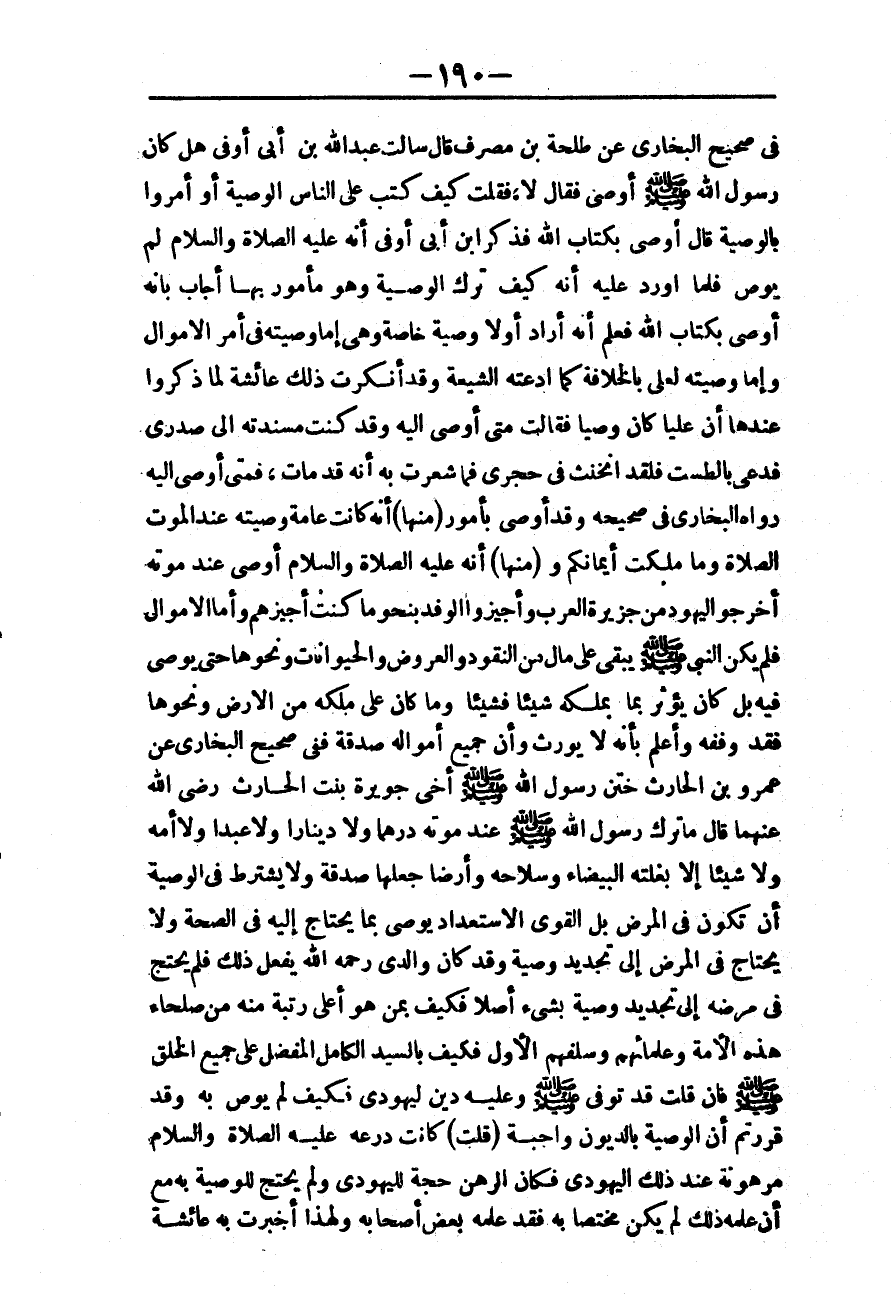 -١٩٠-
فى صحيح البخارى عن طلحة بن مصرف قال سالت عبدالله بن أبى أوفى هل كان
رسول الله ﷺ أوصى فقال لا، فقلت كيف كتب على الناس الوصية أو أمروا
بالوصية قال أوصى بكتاب الله فذكر ابن أبى أوفى أنه عليه الصلاة والسلام لم
يوص فلما اورد عليه أنه كيف ترك الوصية وهو مأمور بها أجاب بانه
أوصى بكتاب الله فعلم أنه أراد أولا وصية خاصة وهى إما وصيته فى أمر الاموال
وإما وصيته لعلى بالخلافة كما ادعته الشيعة وقد أنكرت ذلك عائشة لما ذكروا
عندها أن عليا كان وصيا فقالت متى أوصى اليه وقد كنت مسندته الى صدرى
فدعى بالطست فلقد انخنث فى حجرى فما شعرت به أنه قد مات، فمتى أوصى اليه
رواه البخارى فى صحيحه وقد أوصى بأمور (منها) أنه كانت عامة وصيته عند الموت
الصلاة وما ملكت أيمانكم و (منها) أنه عليه الصلاة والسلام أوصى عند موته
أخرجو اليهود من جزيرة العرب وأجيزوا الوفد بنحو ما كنت أجيزهم وأما الاموال
فلم يكن النبى ﷺ يبقى على مال من النقود والعروض والحيوانات ونحوها حتى يوصى
فيه بل كان يؤثر بما يملكه شيئا فشيئا وما كان على ملكه من الارض ونحوها
فقد وقفه وأعلم بأنه لا يورث وأن جميع أمواله صدقة ففى صحيح البخارى عن
عمرو بن الحارث ختن رسول الله ﷺ أخى جويرة بنت الحارث رضى الله
عنهما قال ماترك رسول الله ﷺ عند موته درهما ولا دينارا ولا عبدا ولا أمه
ولا شيئا إلا بغلته البيضاء وسلاحه وأرضا جعلها صدقة ولا يشترط فى الوصية
أن تكون فى المرض بل القوى الاستعداد يوصى بما يحتاج إليه فى الصحة ولا
يحتاج فى المرض إلى تجديد وصية وقد كان والدى رحمه الله يفعل ذلك فلم يحتج
فى مرضه إلى تجديد وصية بشىء أصلا فكيف بمن هو أعلى رتبة منه من صلحاء
هذه الأمة وعلمائهم وسلفهم الأول فكيف بالسيد الكامل المفضل على جميع الخلق
ﷺ فان قلت قد توفى ﷺ وعليه دين ليهودى فكيف لم يوص به وقد
قررتم أن الوصية بالديون واجبة (قلت) كانت درعه عليه الصلاة والسلام
مرهونة عند ذلك اليهودى فكان الرهن حجة لليهودى ولم يحتج للوصية به مع
أن علمه ذلك لم يكن مختصا به فقد علمه بعض أصحابه ولهذا أخبرت به عائشة